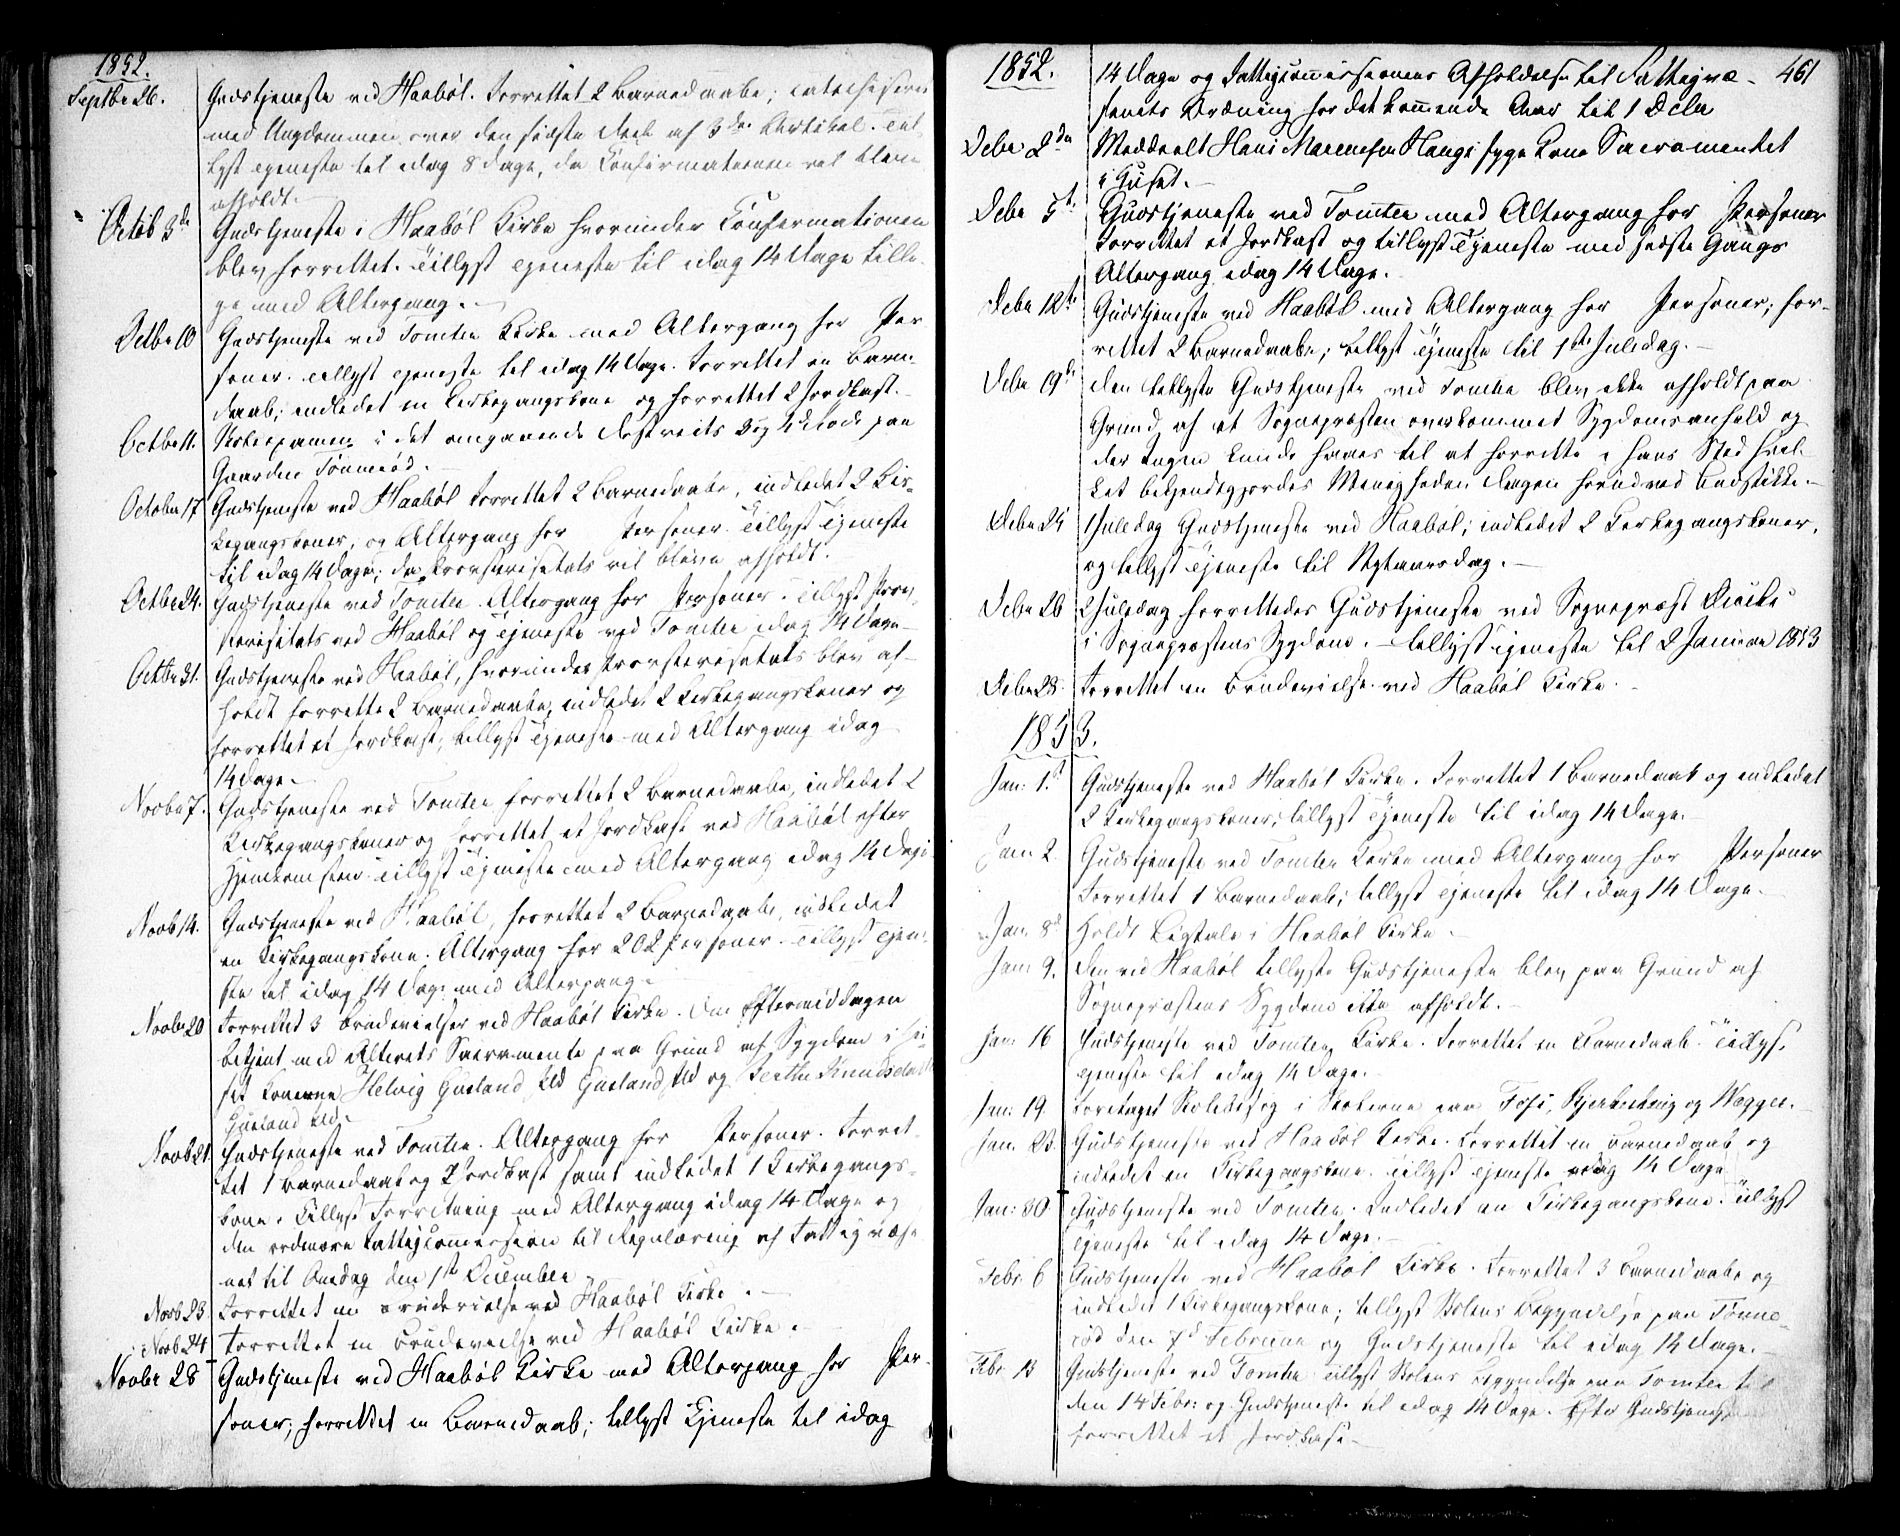 1852.
Septbr 26. Gudstjeneste ved Haabøl. Forrettet 2 Barnedaabe; catechiseret
med Ungdommen over den sidste Deel af 3die Artikel. Til-
lyst Tjeneste til idag 8 Dage, da Confirmationen vil blive
afholdt.
Octob 3die Gudstjeneste i Haabøl Kirke hvorunder Confirmationen
blev forrettet. Tillyst Tjeneste til idag 14 Dage tilli-
ge med Altergang.
Octbr 10 Gudstjeneste ved Tomter Kirke med Altergang for Per-
soner. Tillyst Tjeneste til idag 14 Dage. Forrettet en Barne-
daab; indledet en Kirkegangskone og forrettet 2 Jordkast.
Octbr 11. Skoleexamen i det omgaaende Districts 3 og 4 Rode paa
Gaarden Tønnerød.
October 17 Gudstjeneste ved Haabøl forrettet 2 Barnedaabe, indledet 2 Kir-
kegangskoner, og Altergang for Personer. Tillyst Tjeneste
til idag 14 Dage; da Provstevisitats vil blive afholdt.
Octbr 24. Gudstjeneste ved Tomter. Altergang for Personer. Tillyst Prov-
stevisitats ved Haabøl og Tjeneste ved Tomter idag 14 Dage
Octbr 31. Gudstjeneste ved Haabøl, hvorunder Provstevisitats blev af-
holdt forrettet 2 Barnedaabe, indledet 2 Kirkegangskoner og
forrettet et Jordkast; tillyst Tjeneste med Altergang idag
14 Dage.
Novbr 7. Gudstjeneste ved Tomter forrettet 2 Barnedaabe, indledet 2
Kirkegangskoner og forrettet et Jordkast ved Haabøl efter
Hjemkomsten. Tillyst Tjeneste med Altergang idag 14 Dage.
Novb 14. Gudstjeneste ved Haabøl, forrettet 2 Barnedaabe, indledet
en Kirkegangskone. Altergang for 202 Personer. Tillyst Tjene-
ste til idag 14 Dage med Altergang.
Novbr 20 Forrettet 3 Brudevielser ved Haabøl Kirke. Om Eftermiddagen
betjent med Alterets Sacramente paa Grund af Sygdom i Hu-
set Konerne Helvig Guslund Eld Guslund Eld og Berthe Knudsdatter
Guslund Eld.
Novb 21. Gudstjeneste ved Tomter. Altergang for Personer. Forret-
tet 1 Barnedaab og 2 Jordkast samt indledet 1 Kirkegangs-
kone. Tillyst Forretning med Altergang idag 14 Dage og
den ordinære Fattigcommission til Regulering af Fattigvæse-
net til Onsdag den 1st December
Novb 23 Forrettet en Brudevielse ved Haabøl Kirke.
Novb 24 Forrettet en Brudevielse ved Haabøl Kirke.
Novbr 28 Gudstjeneste ved Haabøl Kirke med Altergang for Per-
soner; forrettet en Barnedaab; tillyst Tjeneste til idag
1852. 14 Dage og Fattigcommissionens Afholdelse til Fattigvæ- 461
senets Ordning for det kommende Aar til 1 Decbr
Decbr 2den Meddeelt Hans Marensen Haugs syge Kone Sacramentet
i Huset.
Decbr 5te Gudstjeneste ved Tomter med Altergang for Personer
Forrettet et Jordkast og tillyst Tjeneste med sidste Gangs
Altergang idag 14 Dage.
Decbr 12te Gudstjeneste ved Haabøl med Altergang for Personer; for-
rettet 2 Barnedaabe; tillyst Tjeneste til 1ste Juledag.
Decbr 19de Den tillyste Gudstjeneste ved Tomter blev ikke afholdt paa
Grund af et Sognepræsten overkommet Sygdomsanfald og
der Ingen kunde haves til at forrette i hans Sted hvil-
ket bekjendtgjordes Menigheden Dagen forud ved Budstikke.
Decbr 25 1 Juledag Gudstjeneste ved Haabøl; indledet 2 Kirkegangskoner,
og tillyst Tjeneste til Nytaarsdag.
Decbr 26 2 Juledag forrettedes Gudstjeneste ved Sognepræst
i Sognepræstens Sygdom. Tillyst Tjeneste til 2 Januar 1853
Decbr 28. Forrettet en Brudevielse ved Haabøl Kirke.
1853.
Jan: 1st Gudstjeneste ved Haabøl Kirke. Forrettet 1 Barnedaab og indledet
2 Kirkegangskoner; tillyst Tjeneste til idag 14 Dage.
Jan: 2. Gudstjeneste ved Tomter Kirke med Altergang for Personer
Forrettet 1 Barnedaab; tillyst Tjeneste til idag 14 Dage.
Jan. 8d Holdt Ligtale i Haabøl Kirke.
Jan: 9. Den ved Haabøl tillyste Gudstjeneste blev paa Grund af
Sognepræstens Sygdom ikke afholdt.
Jan: 16 Gudstjeneste ved Tomter Kirke. Forrettet en Barnedaab. Tillyst
Tjeneste til idag 14 Dage.
Jan: 19. Foretaget Skolebesøg i Skolerne paa Foss, Bjerkebæig og Wegger.
Jan. 23. Gudstjeneste ved Haabøl Kirke. Forrettet en Barnedaab og
indledet en Kirkegangskone. Tillyst Tjeneste idag 14 Dage
Jan: 30. Gudstjeneste ved Tomter. Indledet en Kirkegangskone. Tillyst
Tjeneste til idag 14 Dage.
Febr: 6 Gudstjeneste ved Haabøl Kirke. Forrettet 3 Barnedaabe og
indledet 1 Kirkegangskone; tillyst Skolens Begyndelse paa Tønne-
rød den 7d Februar og Gudstjeneste til idag 14 Dage.
Febr 13 Gudstjeneste ved Tomter tillyst Skolens Begyndelse paa Tomter til
den 14 Febr: og Gudstjeneste til idag 14 Dage. Efter Gudstjenesten
forrettet et Jordkast.